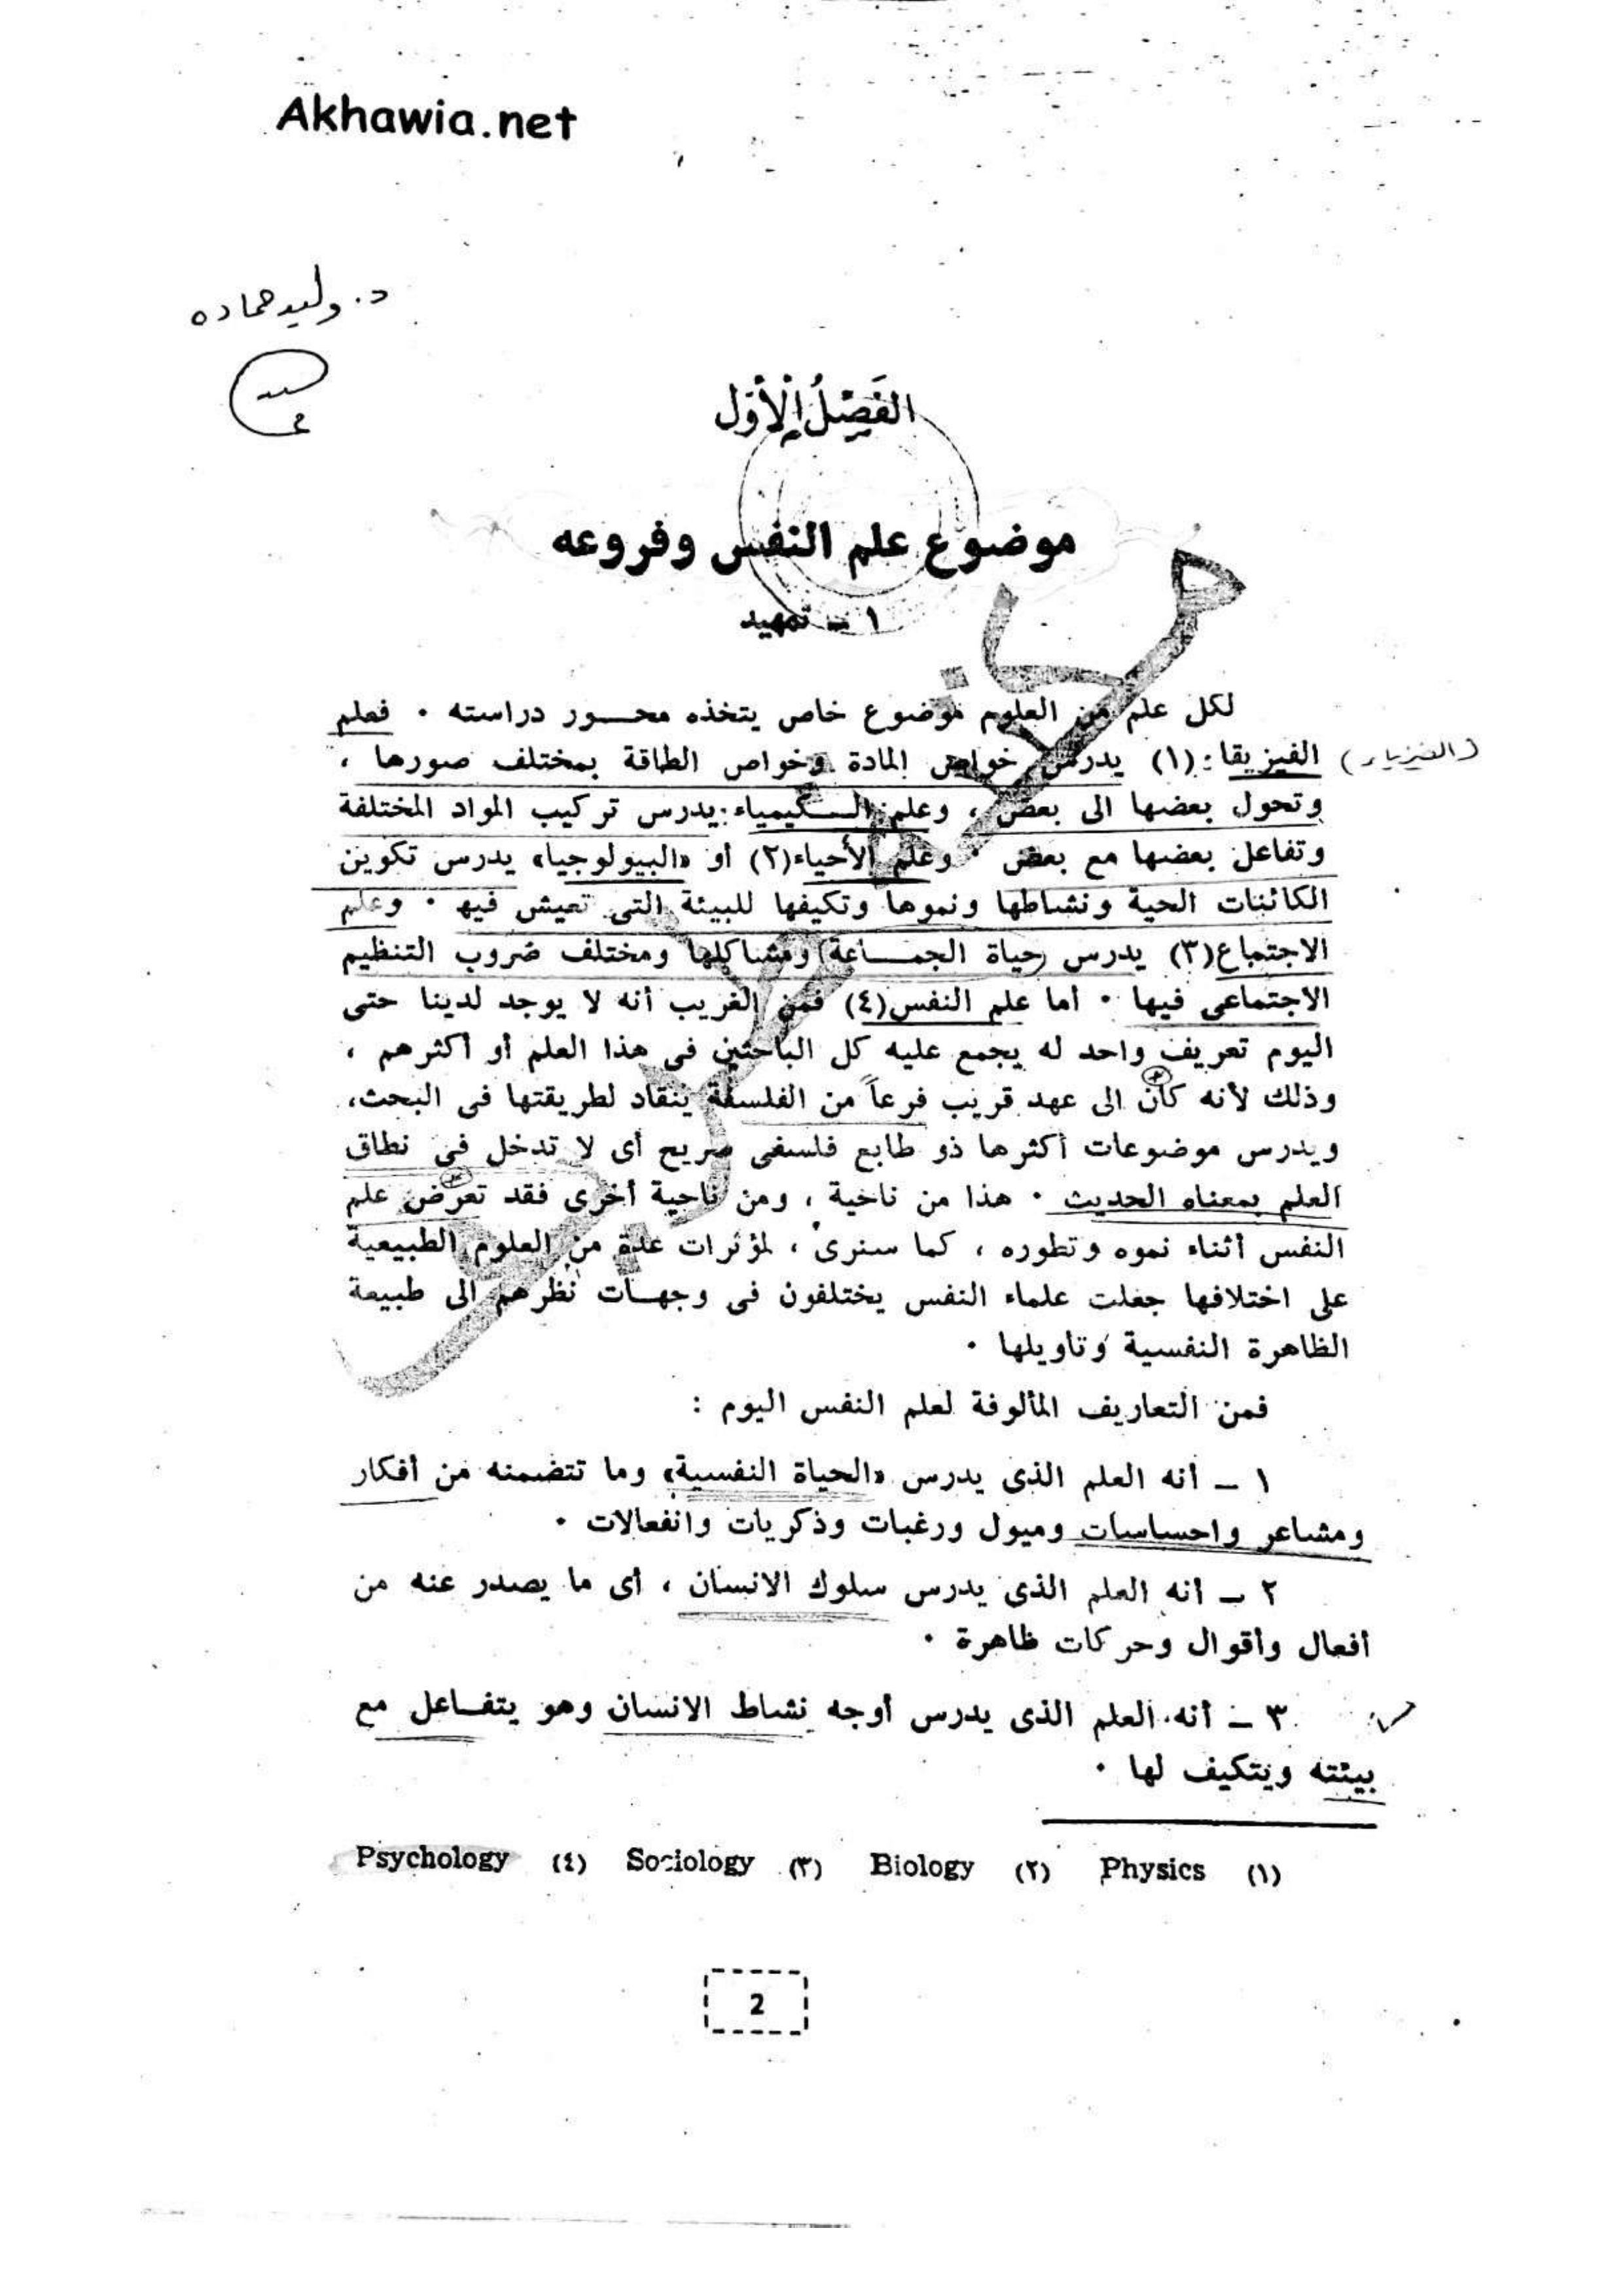 Akhawia.net
د. وليد حماده
الفَصْلُ الأَوَّل
موضوع علم النفس وفروعه
١ ــ تمهيد
لكل علم من العلوم موضوع خاص يتخذه محـــور دراسته ٠ فعلم
الفيزيقا : (١) يدرس خواص المادة وخواص الطاقة بمختلف صورها ،
(الفيزياء)
وتحول بعضها الى بعض ، وعلم الـــكيمياء : يدرس تركيب المواد المختلفة
وتفاعل بعضها مع بعض ٠ وعلم الأحياء(٢) أو «البيولوجيا» يدرس تكوين
الكائنات الحية ونشاطها ونموها وتكيفها للبيئة التى تعيش فيها ٠ وعلم
الاجتماع(٣) يدرس (حياة الجمـــاعة) ومشاكلها ومختلف ضروب التنظيم
الاجتماعى فيها ٠ أما علم النفس(٤) فمن الغريب أنه لا يوجد لدينا حتى
اليوم تعريف واحد له يجمع عليه كل الباحثين فى هذا العلم أو أكثرهم ،
وذلك لأنه كان الى عهد قريب فرعاً من الفلسفة ينقاد لطريقتها فى البحث،
ويدرس موضوعات أكثرها ذو طابع فلسفى صريح أى لا تدخل فى نطاق
العلم بمعناه الحديث ٠ هذا من ناحية ، ومن ناحية أخرى فقد تعرض علم
النفس أثناء نموه وتطوره ، كما سنرى ، لمؤثرات عدة من العلوم الطبيعية
على اختلافها جعلت علماء النفس يختلفون فى وجهـات نظرهم الى طبيعة
الظاهرة النفسية وتاويلها ٠
فمن التعاريف المألوفة لعلم النفس اليوم :
١ ــ أنه العلم الذى يدرس «الحياة النفسية» وما تتضمنه من أفكار
ومشاعر واحساسات وميول ورغبات وذكريات وانفعالات ٠
٢ ــ أنه العلم الذى يدرس سلوك الانسان ، أى ما يصدر عنه من
أفعال وأقوال وحركات ظاهرة ٠
٣ ــ أنه العلم الذى يدرس أوجه نشاط الانسان وهو يتفـاعل مع
بيئته ويتكيف لها ٠
(١) Physics (٢) Biology (٣) Sociology (٤) Psychology
2